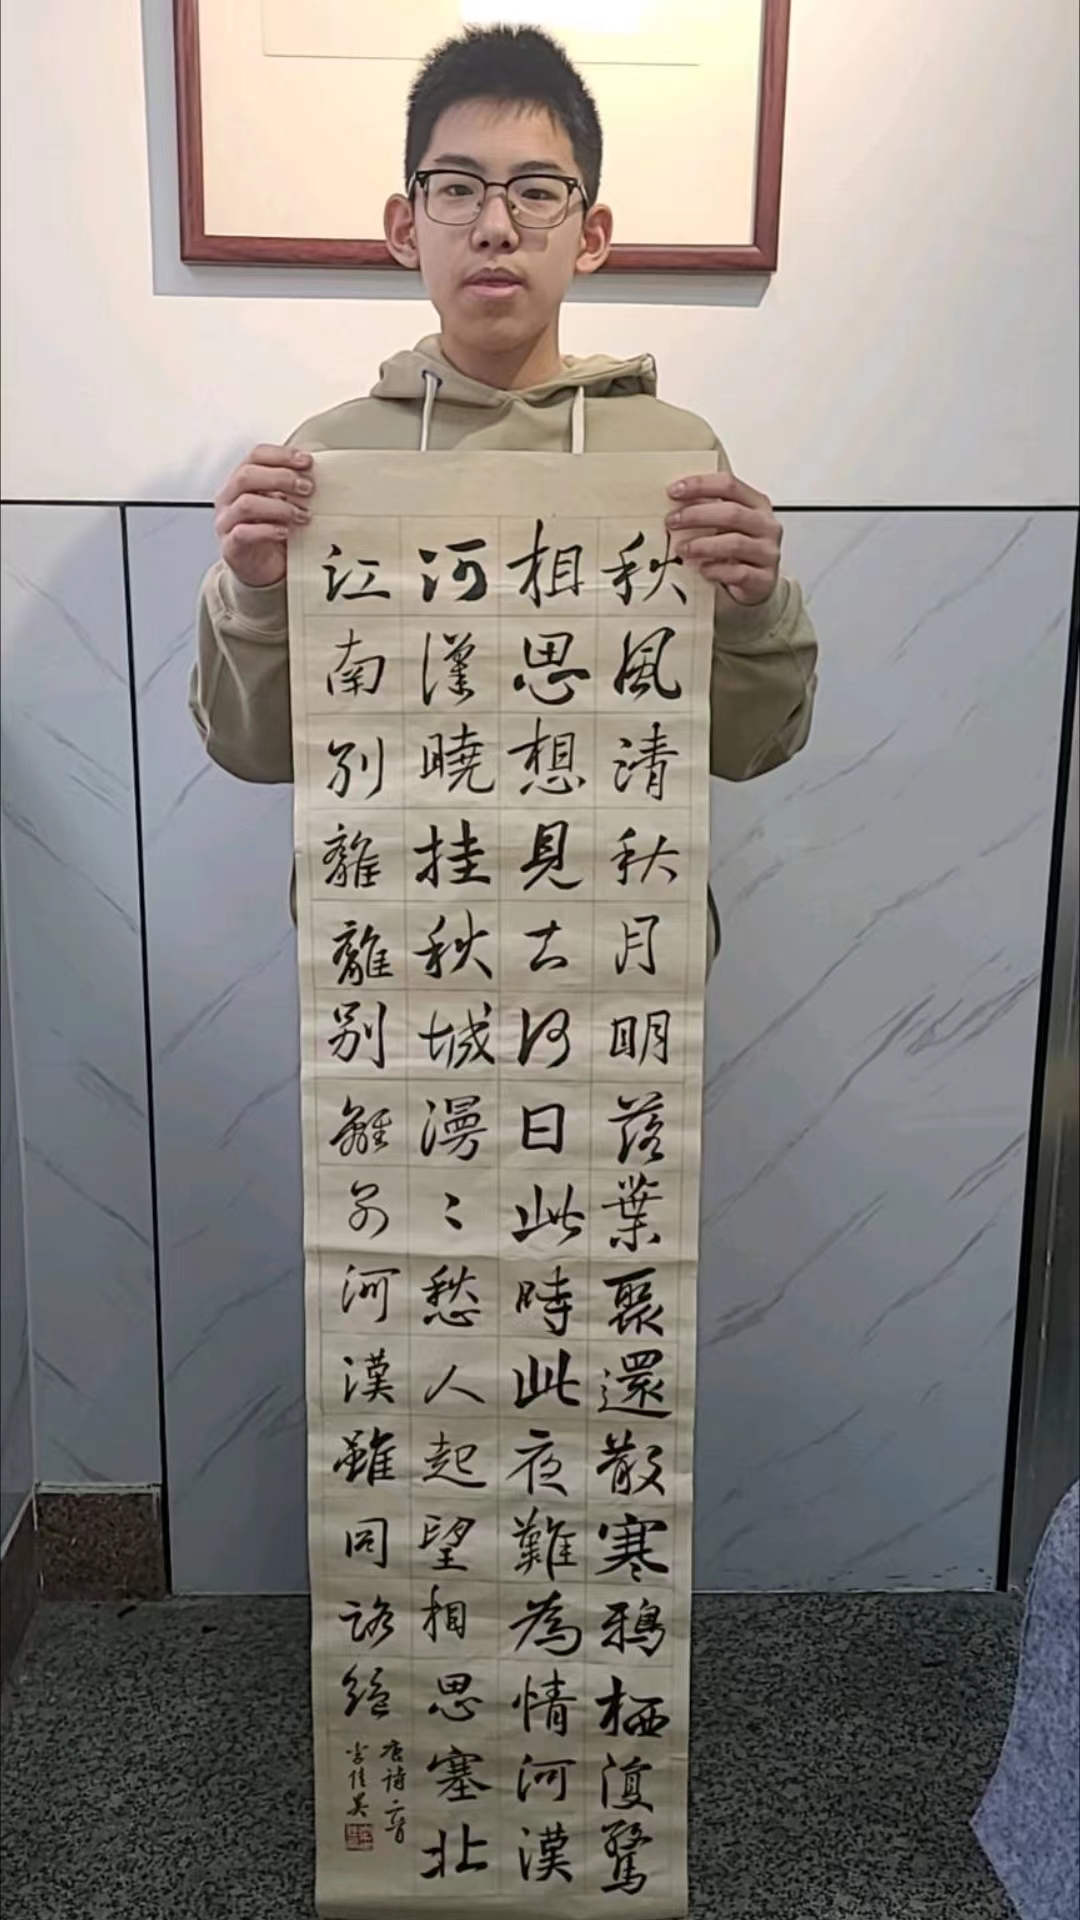 秋風清秋月明落葉聚還散寒鴉栖復驚
相思想見知何日此時此夜難為情河漢
河漢曉挂秋城漫〻愁人起望相思塞北
江南別離離別離別河漢雖同路絕
唐詩二首
李佳昊